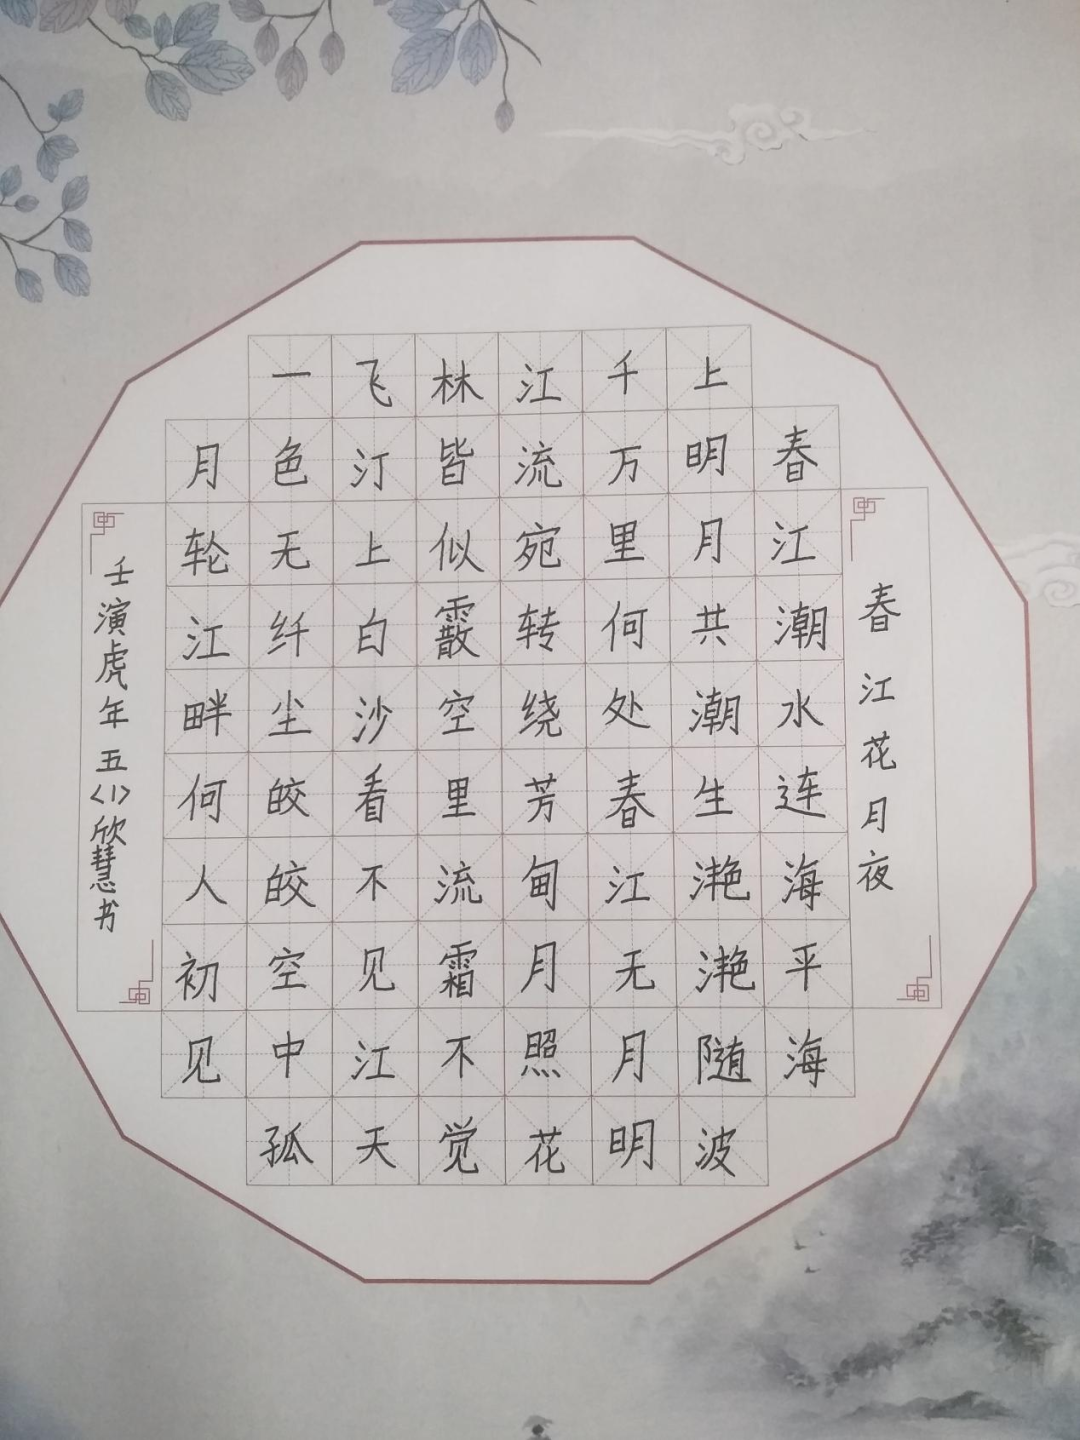 春江花月夜
春江潮水连海平海
上明月共潮生滟滟随波
千万里何处春江无月明
江流宛转绕芳甸月照花
林皆似霰空里流霜不觉
飞汀上白沙看不见江天
一色无纤尘皎皎空中孤
月轮江畔何人初见
壬演虎年五<1>欣慧书